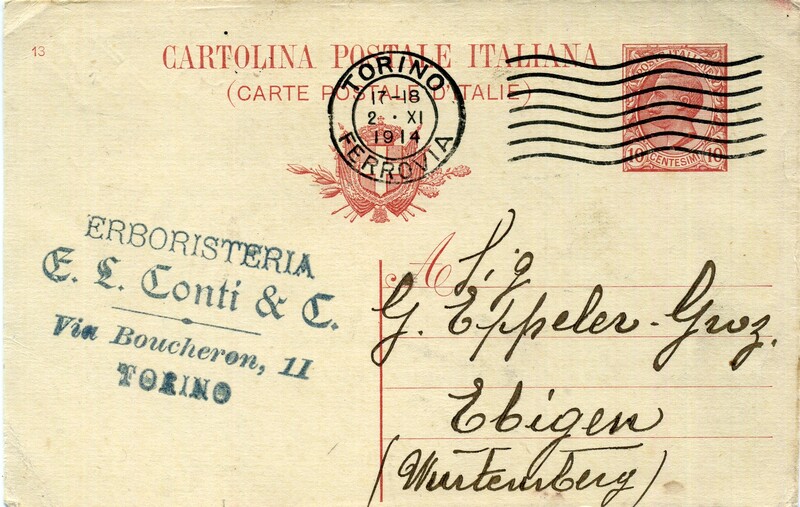 13
CARTOLINA POSTALE ITALIANA
(CARTE POSTALE D'ITALIE)
TORINO
17-18
2 · XI
1914
FERROVIA
POSTE ITALIANE
10 CENTESIMI 10
ERBORISTERIA
E. L. Conti & C.
Via Boucheron, 11
TORINO
A Sig
G. Eppeler-Groz.
Ebigen
(Wurtemberg)